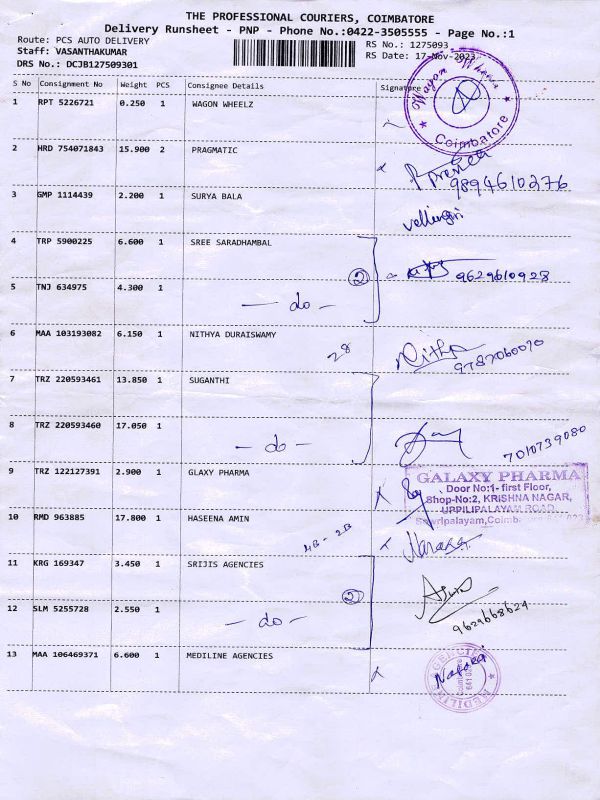 THE PROFESSIONAL COURIERS, COIMBATORE
Delivery Runsheet - PNP - Phone No.:0422-3505555 - Page No.:1
Route: PCS AUTO DELIVERY
RS No.: 1275093
Staff: VASANTHAKUMAR
RS Date: 17-Nov-2023
DRS No.: DCJB127509301
S No Consignment No Weight PCS Consignee Details Signature
Wagon Wheelz
Coimbatore
1 RPT 5226721 0.250 1 WAGON WHEELZ
2 HRD 754071843 15.900 2 PRAGMATIC
9894610276
3 GMP 1114439 2.200 1 SURYA BALA
vellingiri
4 TRP 5900225 6.600 1 SREE SARADHAMBAL
2 9629610928
5 TNJ 634975 4.300 1
— do —
6 MAA 103193082 6.150 1 NITHYA DURAISWAMY
28 Nithya
9787060070
7 TRZ 220593461 13.850 1 SUGANTHI
8 TRZ 220593460 17.050 1
— do —
7010739080
9 TRZ 122127391 2.900 1 GLAXY PHARMA
GALAXY PHARMA
Door No:1- first Floor,
Shop-No:2, KRISHNA NAGAR,
UPPILIPALAYAM ROAD,
Sowripalayam,Coimb
10 RMD 963885 17.800 1 HASEENA AMIN
4B - 2B
11 KRG 169347 3.450 1 SRIJIS AGENCIES
2
12 SLM 5255728 2.550 1
— do —
9629668624
13 MAA 106469371 6.600 1 MEDILINE AGENCIES